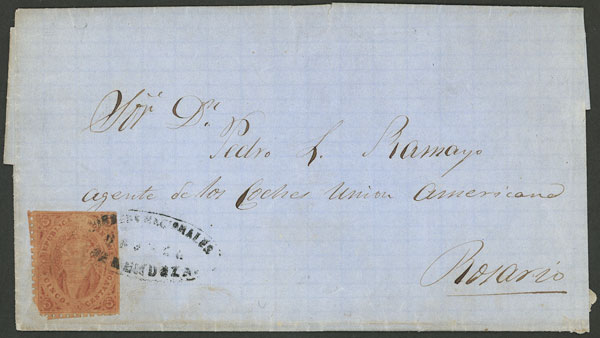 Sōr Dn
Pedro L. Ramayo
agente de los Coches Union Americana
Rosario
CORREOS NACIONALES
DE MENDOZA
CINCO CENTAVOS